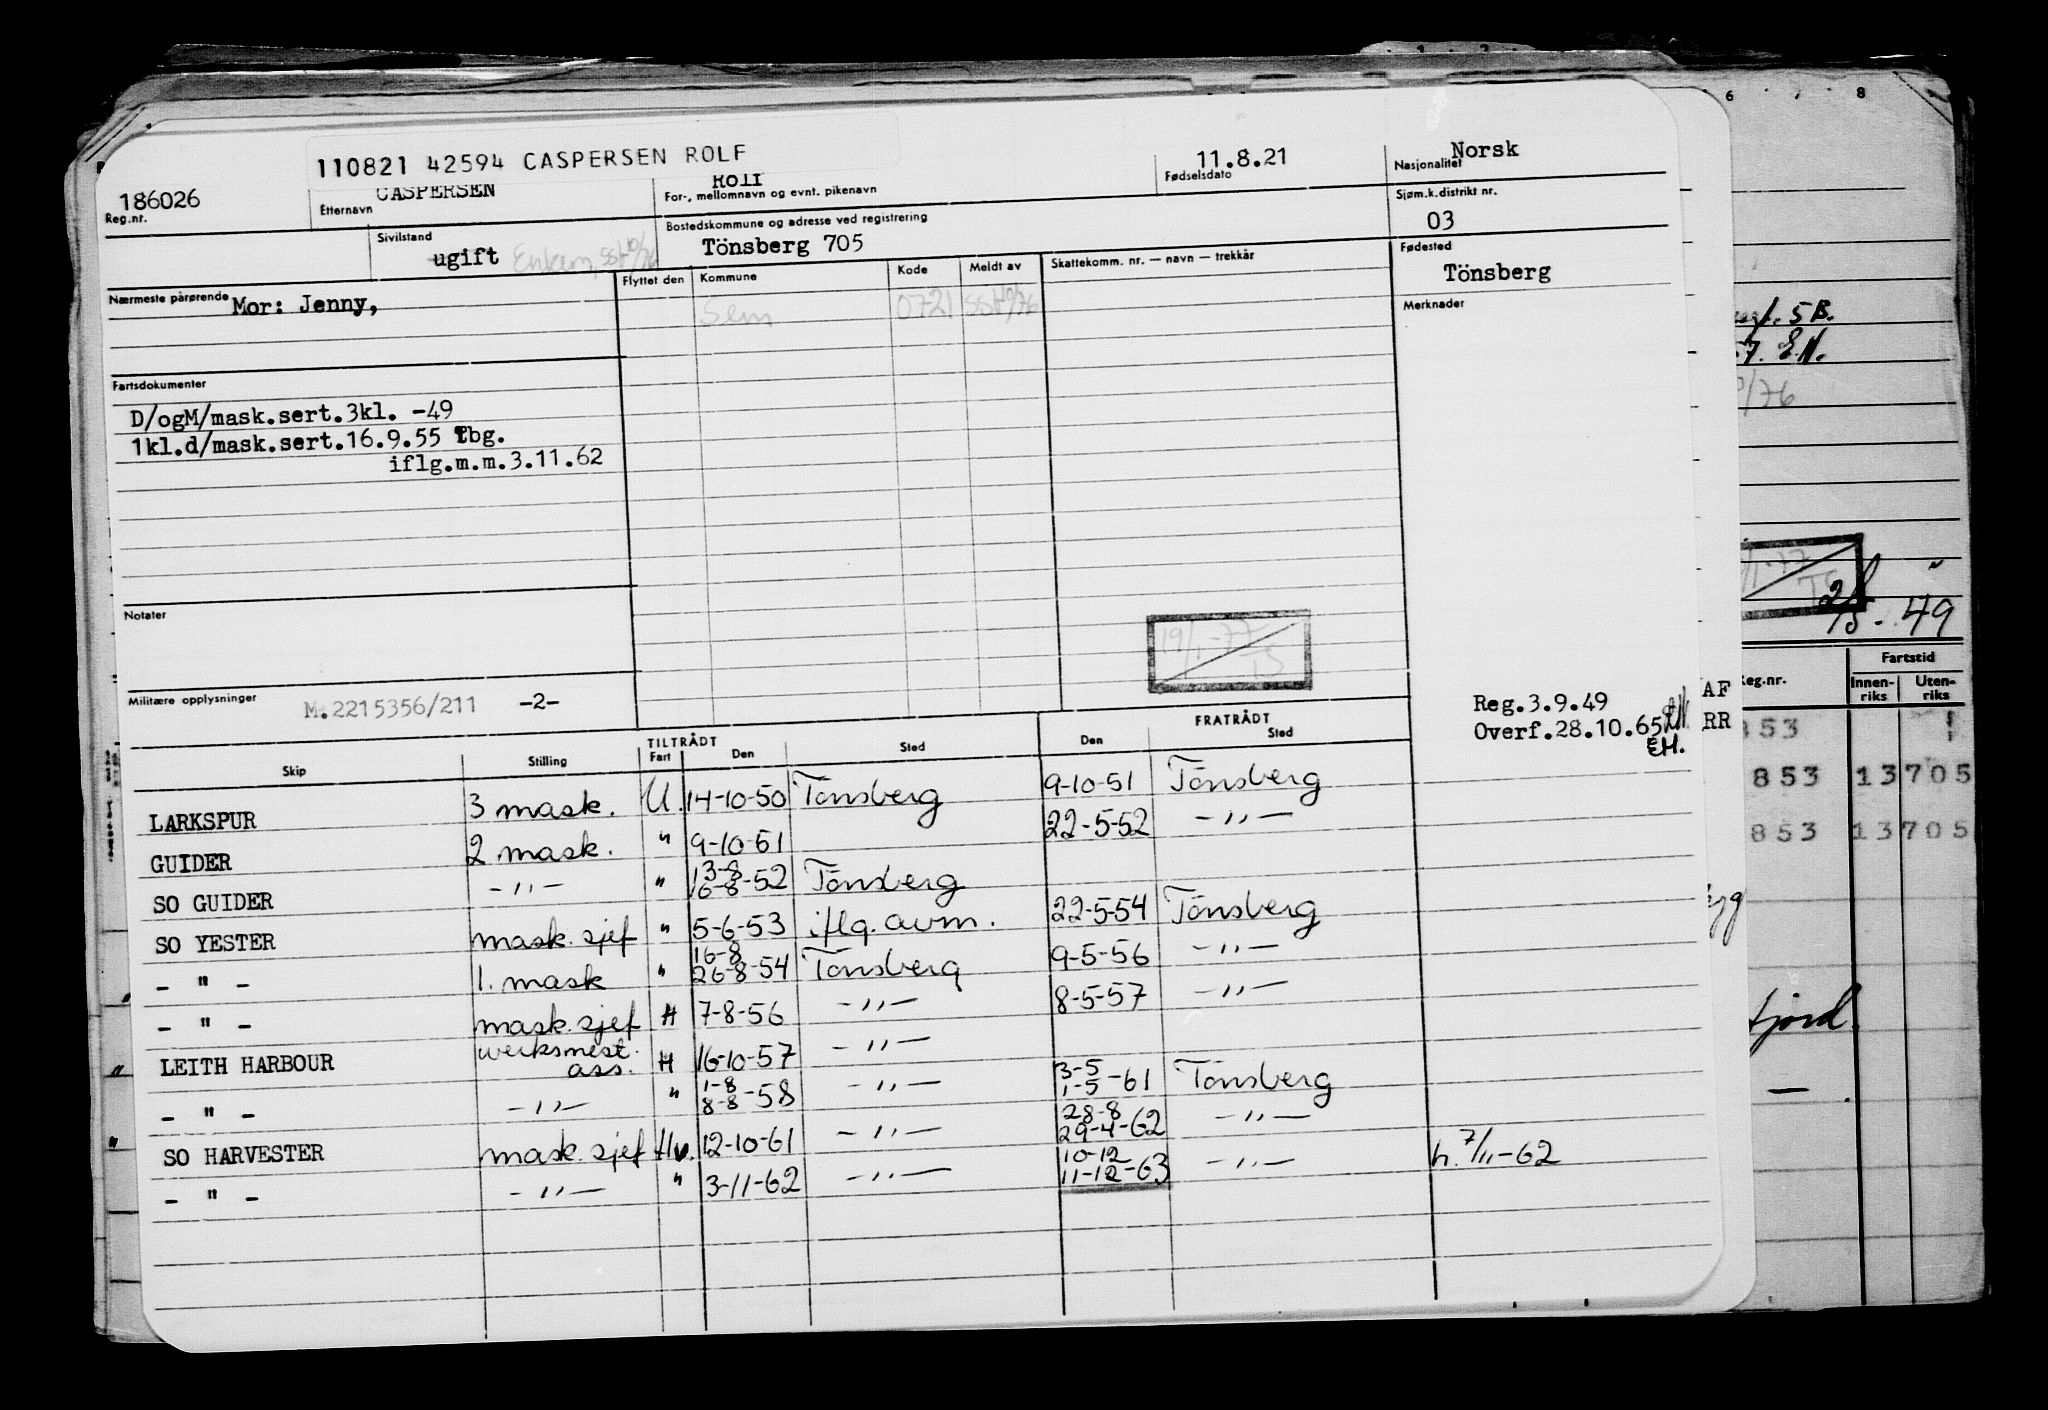 110821 42594 CASPERSEN ROLF
186026
Reg.nr.
CASPERSEN
Etternavn
Rolf
For-, mellomnavn og evnt. pikenavn
11.8.21
Fødselsdato
Norsk
Nasjonalitet
Sivilstand
ugift
Bostedskommune og adresse ved registrering
Tönsberg 705
Sjøm.k.distrikt nr.
03
Nærmeste pårørende Mor: Jenny,
Flyttet den Kommune Kode Meldt av Skattekomm. nr. — navn — trekkår
Sem 0721
Fødested
Tönsberg
Merknader
Fartsdokumenter
D/ogM/mask.sert.3kl. -49
1kl.d/mask.sert.16.9.55 Tbg.
iflg.m.m.3.11.62
Notater
19/1-77
TS
Militære opplysninger M.2215356/211 -2-
Reg.3.9.49
Overf.28.10.65
E.H.
TILTRÅDT FRATRÅDT
Skip Stilling Fart Den Sted Den Sted
LARKSPUR 3 mask. U. 14-10-50 Tönsberg 9-10-51 Tönsberg
GUIDER 2 mask. " 9-10-51 22-5-52 -"-
SO GUIDER -"- " 13-8 16-8-52 Tönsberg
SO YESTER mask. sjef " 5-6-53 iflg. avm. 22-5-54 Tönsberg
- " - 1. mask " 16-8 26-8-54 Tönsberg 9-5-56 -"-
- " - mask. sjef H 7-8-56 -"- 8-5-57 -"-
LEITH HARBOUR verksmest. ass. H 16-10-57 -"-
- " - -"- " 1-8 8-8-58 -"- 3-5 1-5-61 Tönsberg
SO HARVESTER mask. sjef Hv. 12-10-61 -"- 28-8 29-4-62 -"-
- " - -"- " 3-11-62 -"- 10-12 11-12-63 -"- h. 7/11-62
6 7 8
5B.
/76
49
Reg.nr. Fartstid
Innen-riks Uten-riks
AF
RR
853
853 13 705
853 13 705